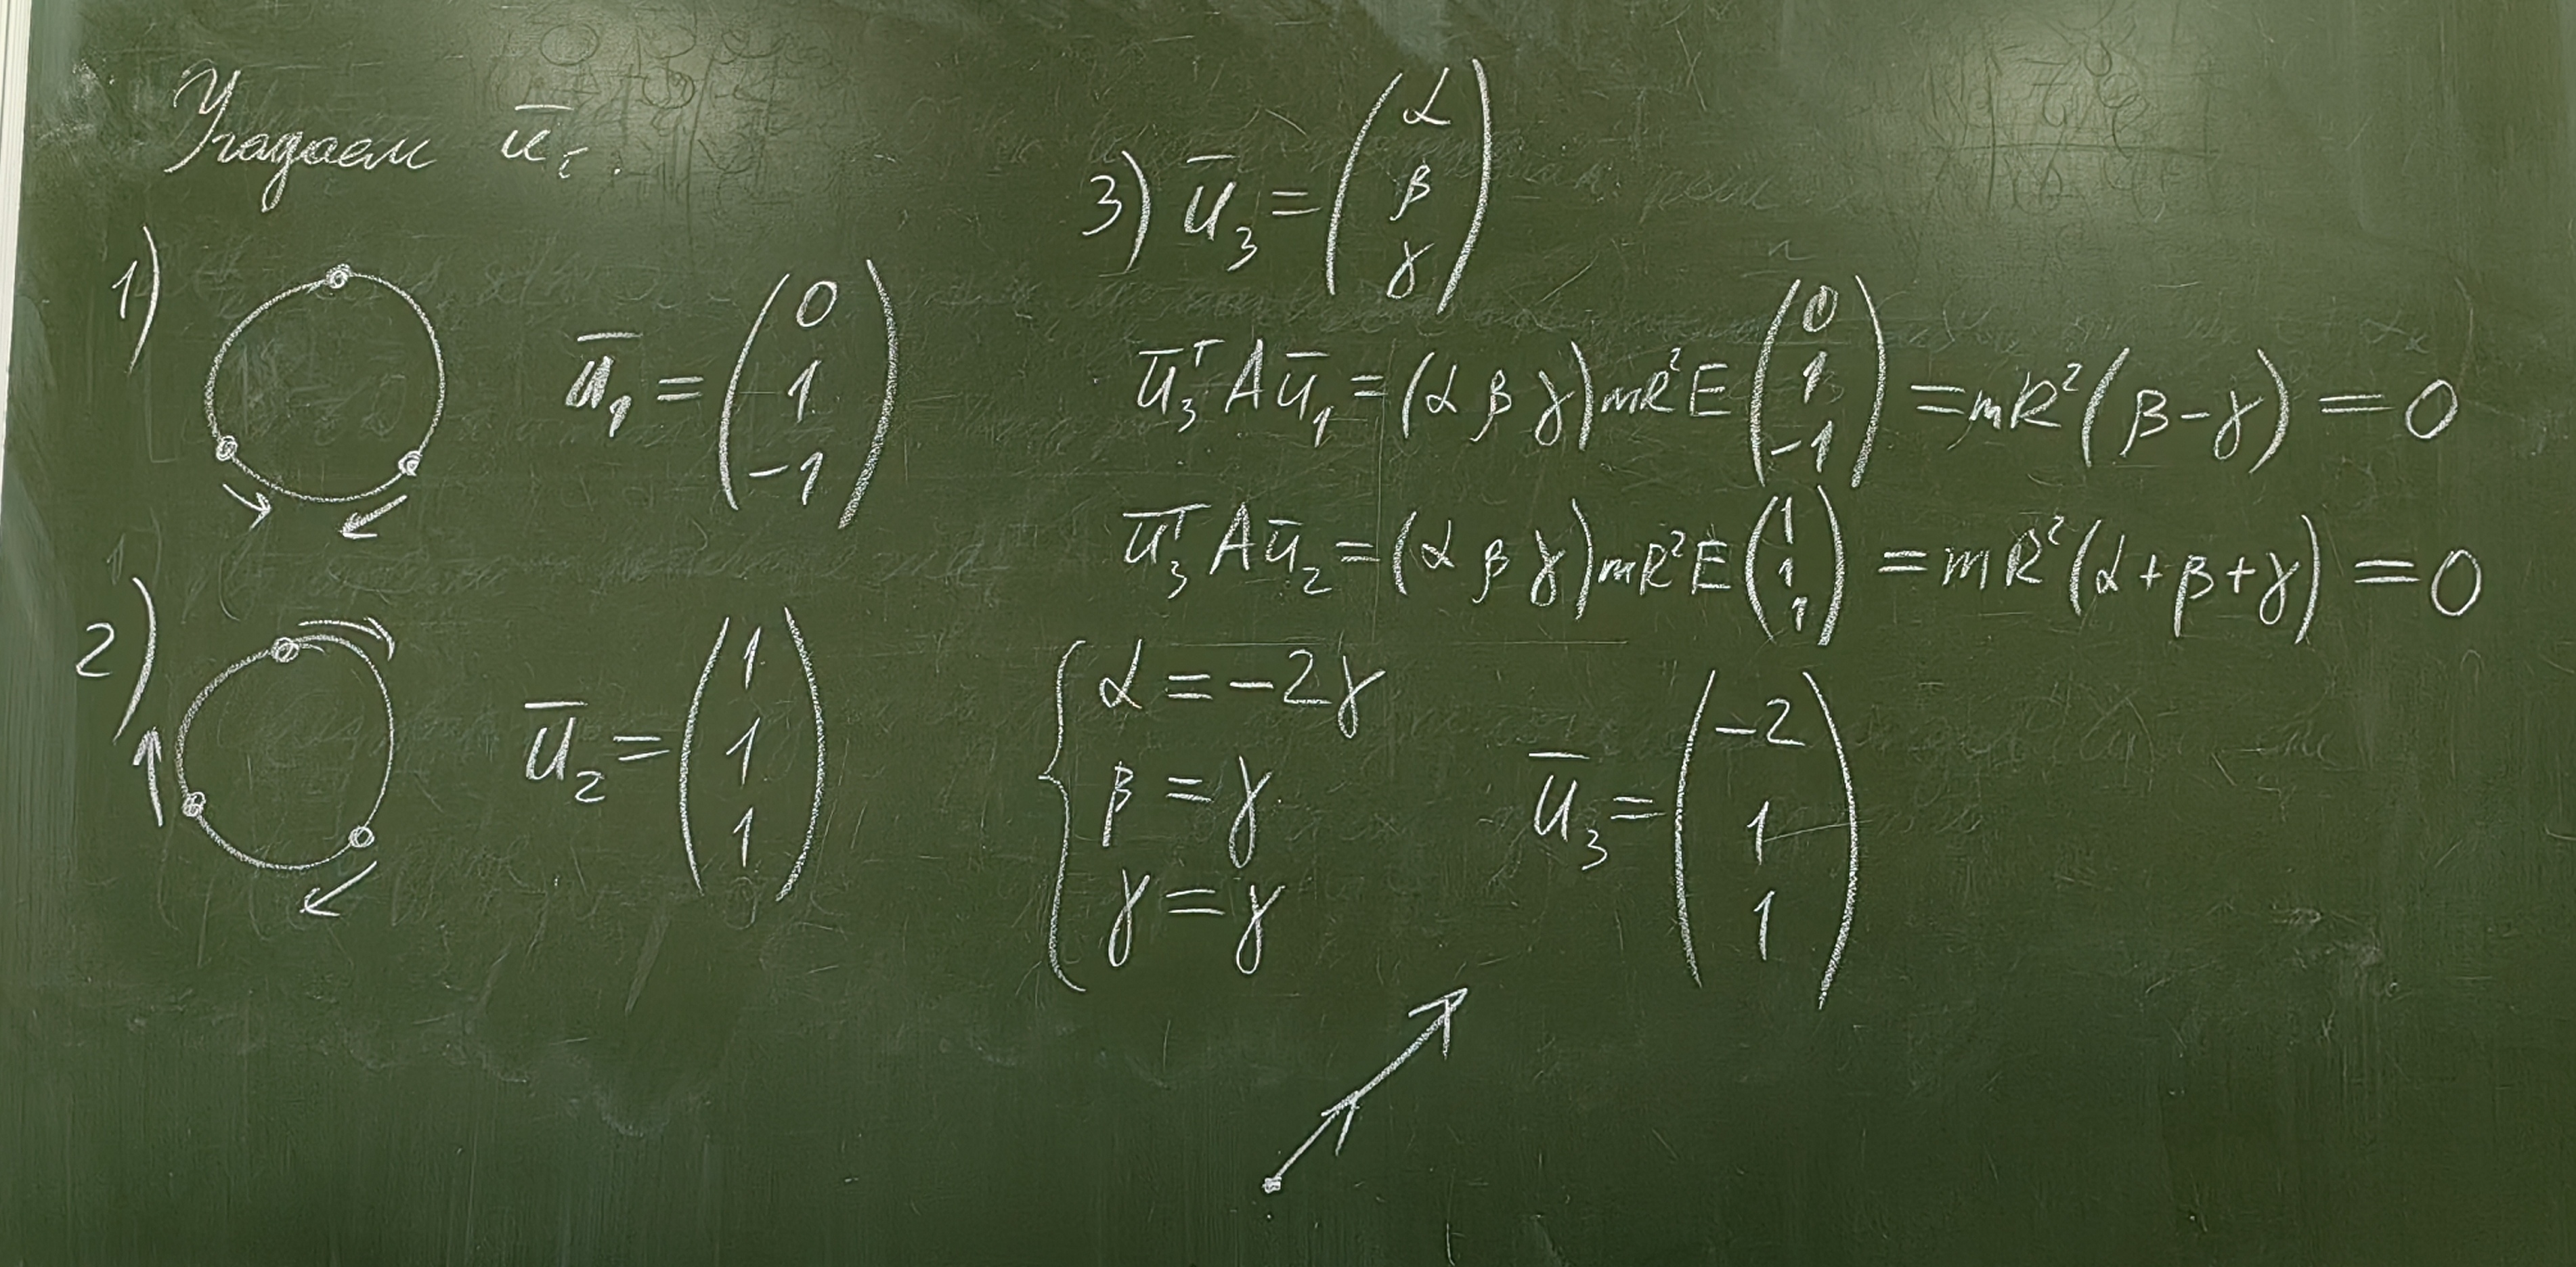 Угадаем ū_i.
1) ū₁ = (0 1 -1)
2) ū₂ = (1 1 1)
3) ū₃ = (α β γ)
ū₃ᵀ A ū₁ = (α β γ) mR² E (0 1 -1) = mR² (β - γ) = 0
ū₃ᵀ A ū₂ = (α β γ) mR² E (1 1 1) = mR² (α + β + γ) = 0
{ α = -2γ
β = γ
γ = γ
ū₃ = (-2 1 1)